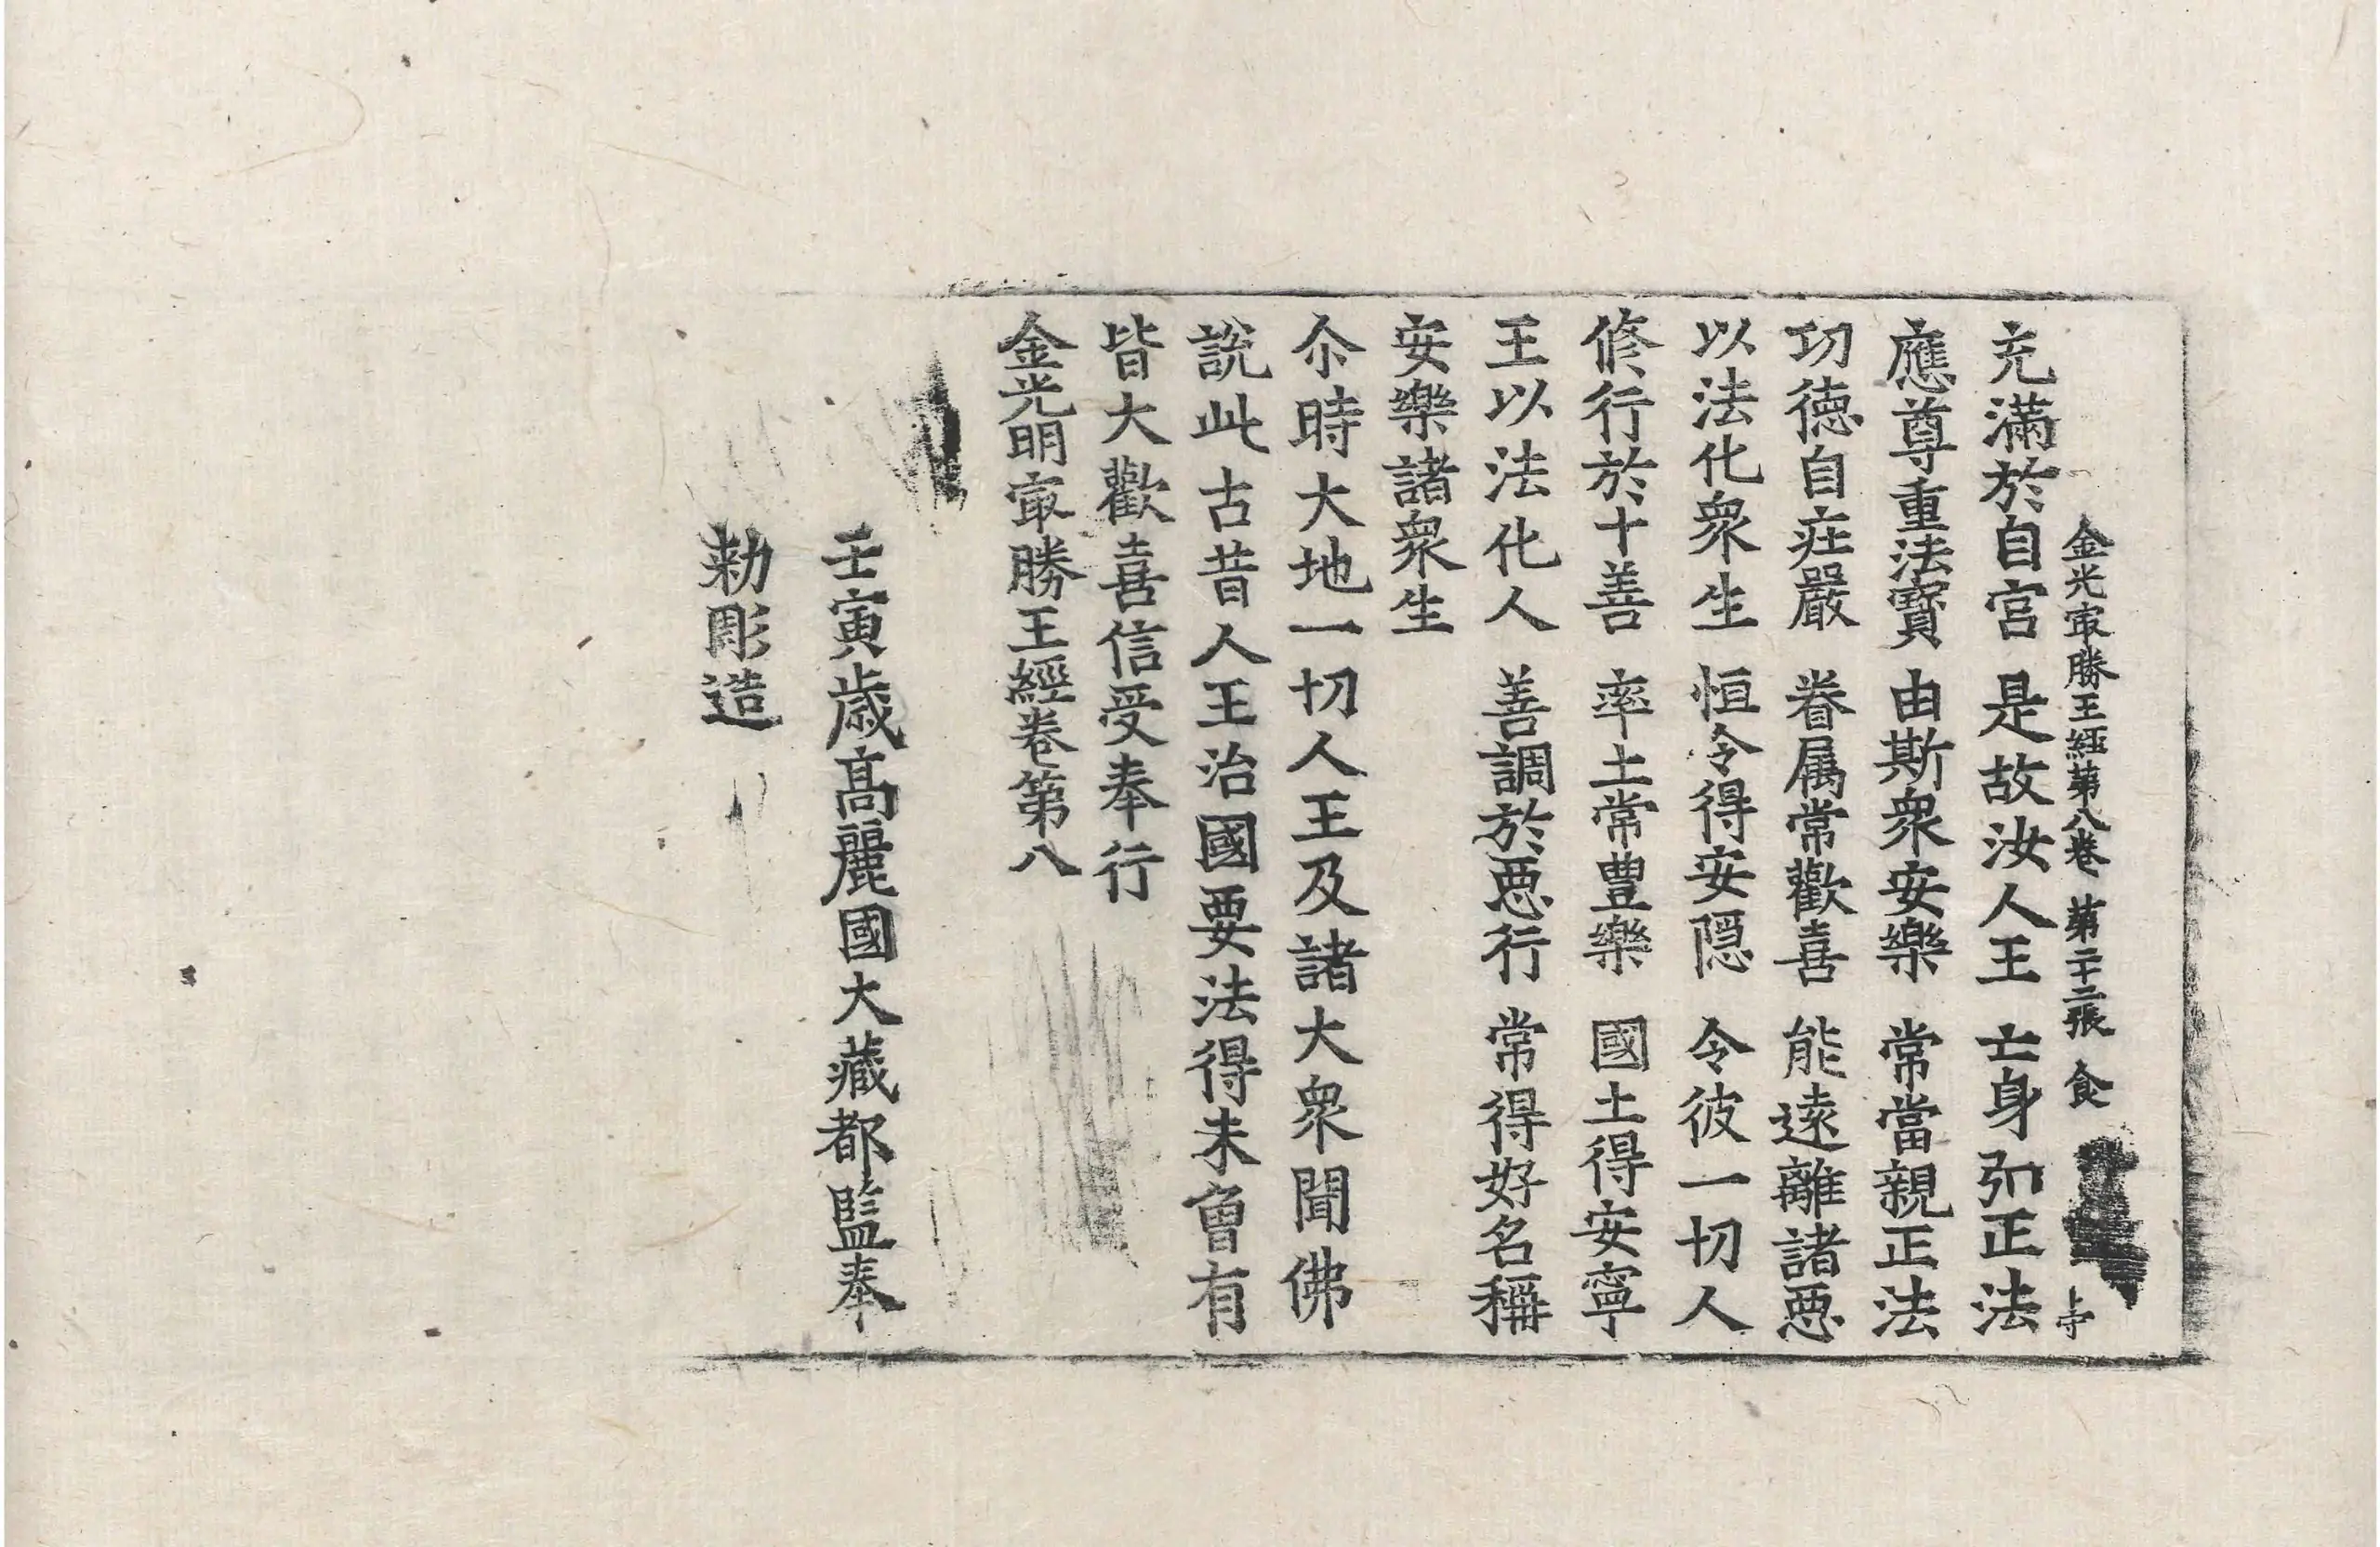 金光㝡勝王經第八卷　第二十二張　食
充滿於自宮　是故汝人王　亡身弘正法
應尊重法寶　由斯衆安樂　常當親正法
功德自在嚴　眷属常歡喜　能遠離諸惡
以法化衆生　恒令得安隠　令彼一切人
修行於十善　率土常豊樂　國土得安寧
王以法化人　善調於惡行　常得好名稱
安樂諸衆生
尒時大地一切人王及諸大衆聞佛
說此古昔人王治國要法得未曾有
皆大歡喜信受奉行
金光明㝡勝王經卷第八
壬寅歳髙麗國大藏都監奉
勅彫造